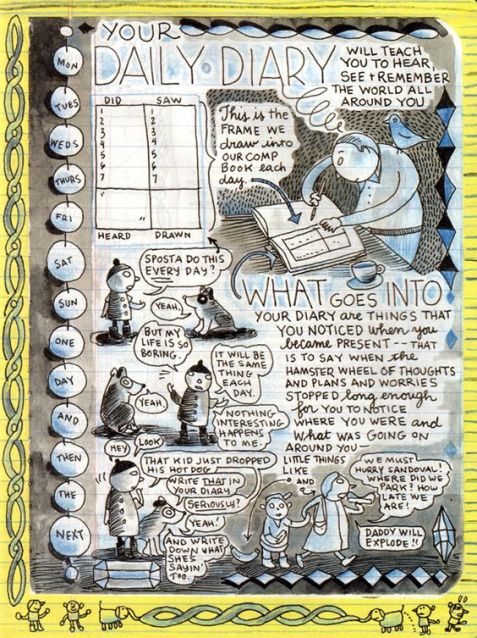 YOUR
DAILY DIARY
WILL TEACH
YOU TO HEAR,
SEE + REMEMBER
THE WORLD ALL
AROUND YOU
MON
TUES
WEDS
THURS
FRI
SAT
SUN
ONE
DAY
AND
THEN
THE
NEXT
DID SAW
1 1
2 2
3 3
4 4
5 5
6 6
7 7
"
HEARD DRAWN
This is the
FRAME WE
draw into
OUR COMP
BOOK each
day.
SPOSTA DO THIS
EVERY DAY?
YEAH.
BUT MY
LIFE IS SO
BORING.
YEAH.
IT WILL BE
THE SAME
THING
EACH
DAY.
NOTHING
INTERESTING
HAPPENS
TO ME.
WHAT GOES INTO
YOUR DIARY are THINGS THAT
YOU NOTICED when you
became PRESENT -- THAT
IS TO SAY WHEN the
HAMSTER WHEEL OF THOUGHTS
AND PLANS AND WORRIES
STOPPED long enough
for YOU TO NOTICE
WHERE YOU WERE and
what WAS GOING ON
AROUND YOU—
HEY
LOOK
THAT KID JUST DROPPED
HIS HOT DOG
WRITE THAT IN
YOUR DIARY
SERIOUSLY?
YEAH!
AND WRITE
DOWN WHAT
SHE'S
SAYIN'
TOO.
LITTLE THINGS
LIKE
AND
WE MUST
HURRY SANDOVAL!
WHERE DID WE
PARK? HOW
LATE WE
ARE!
DADDY WILL
EXPLODE!!